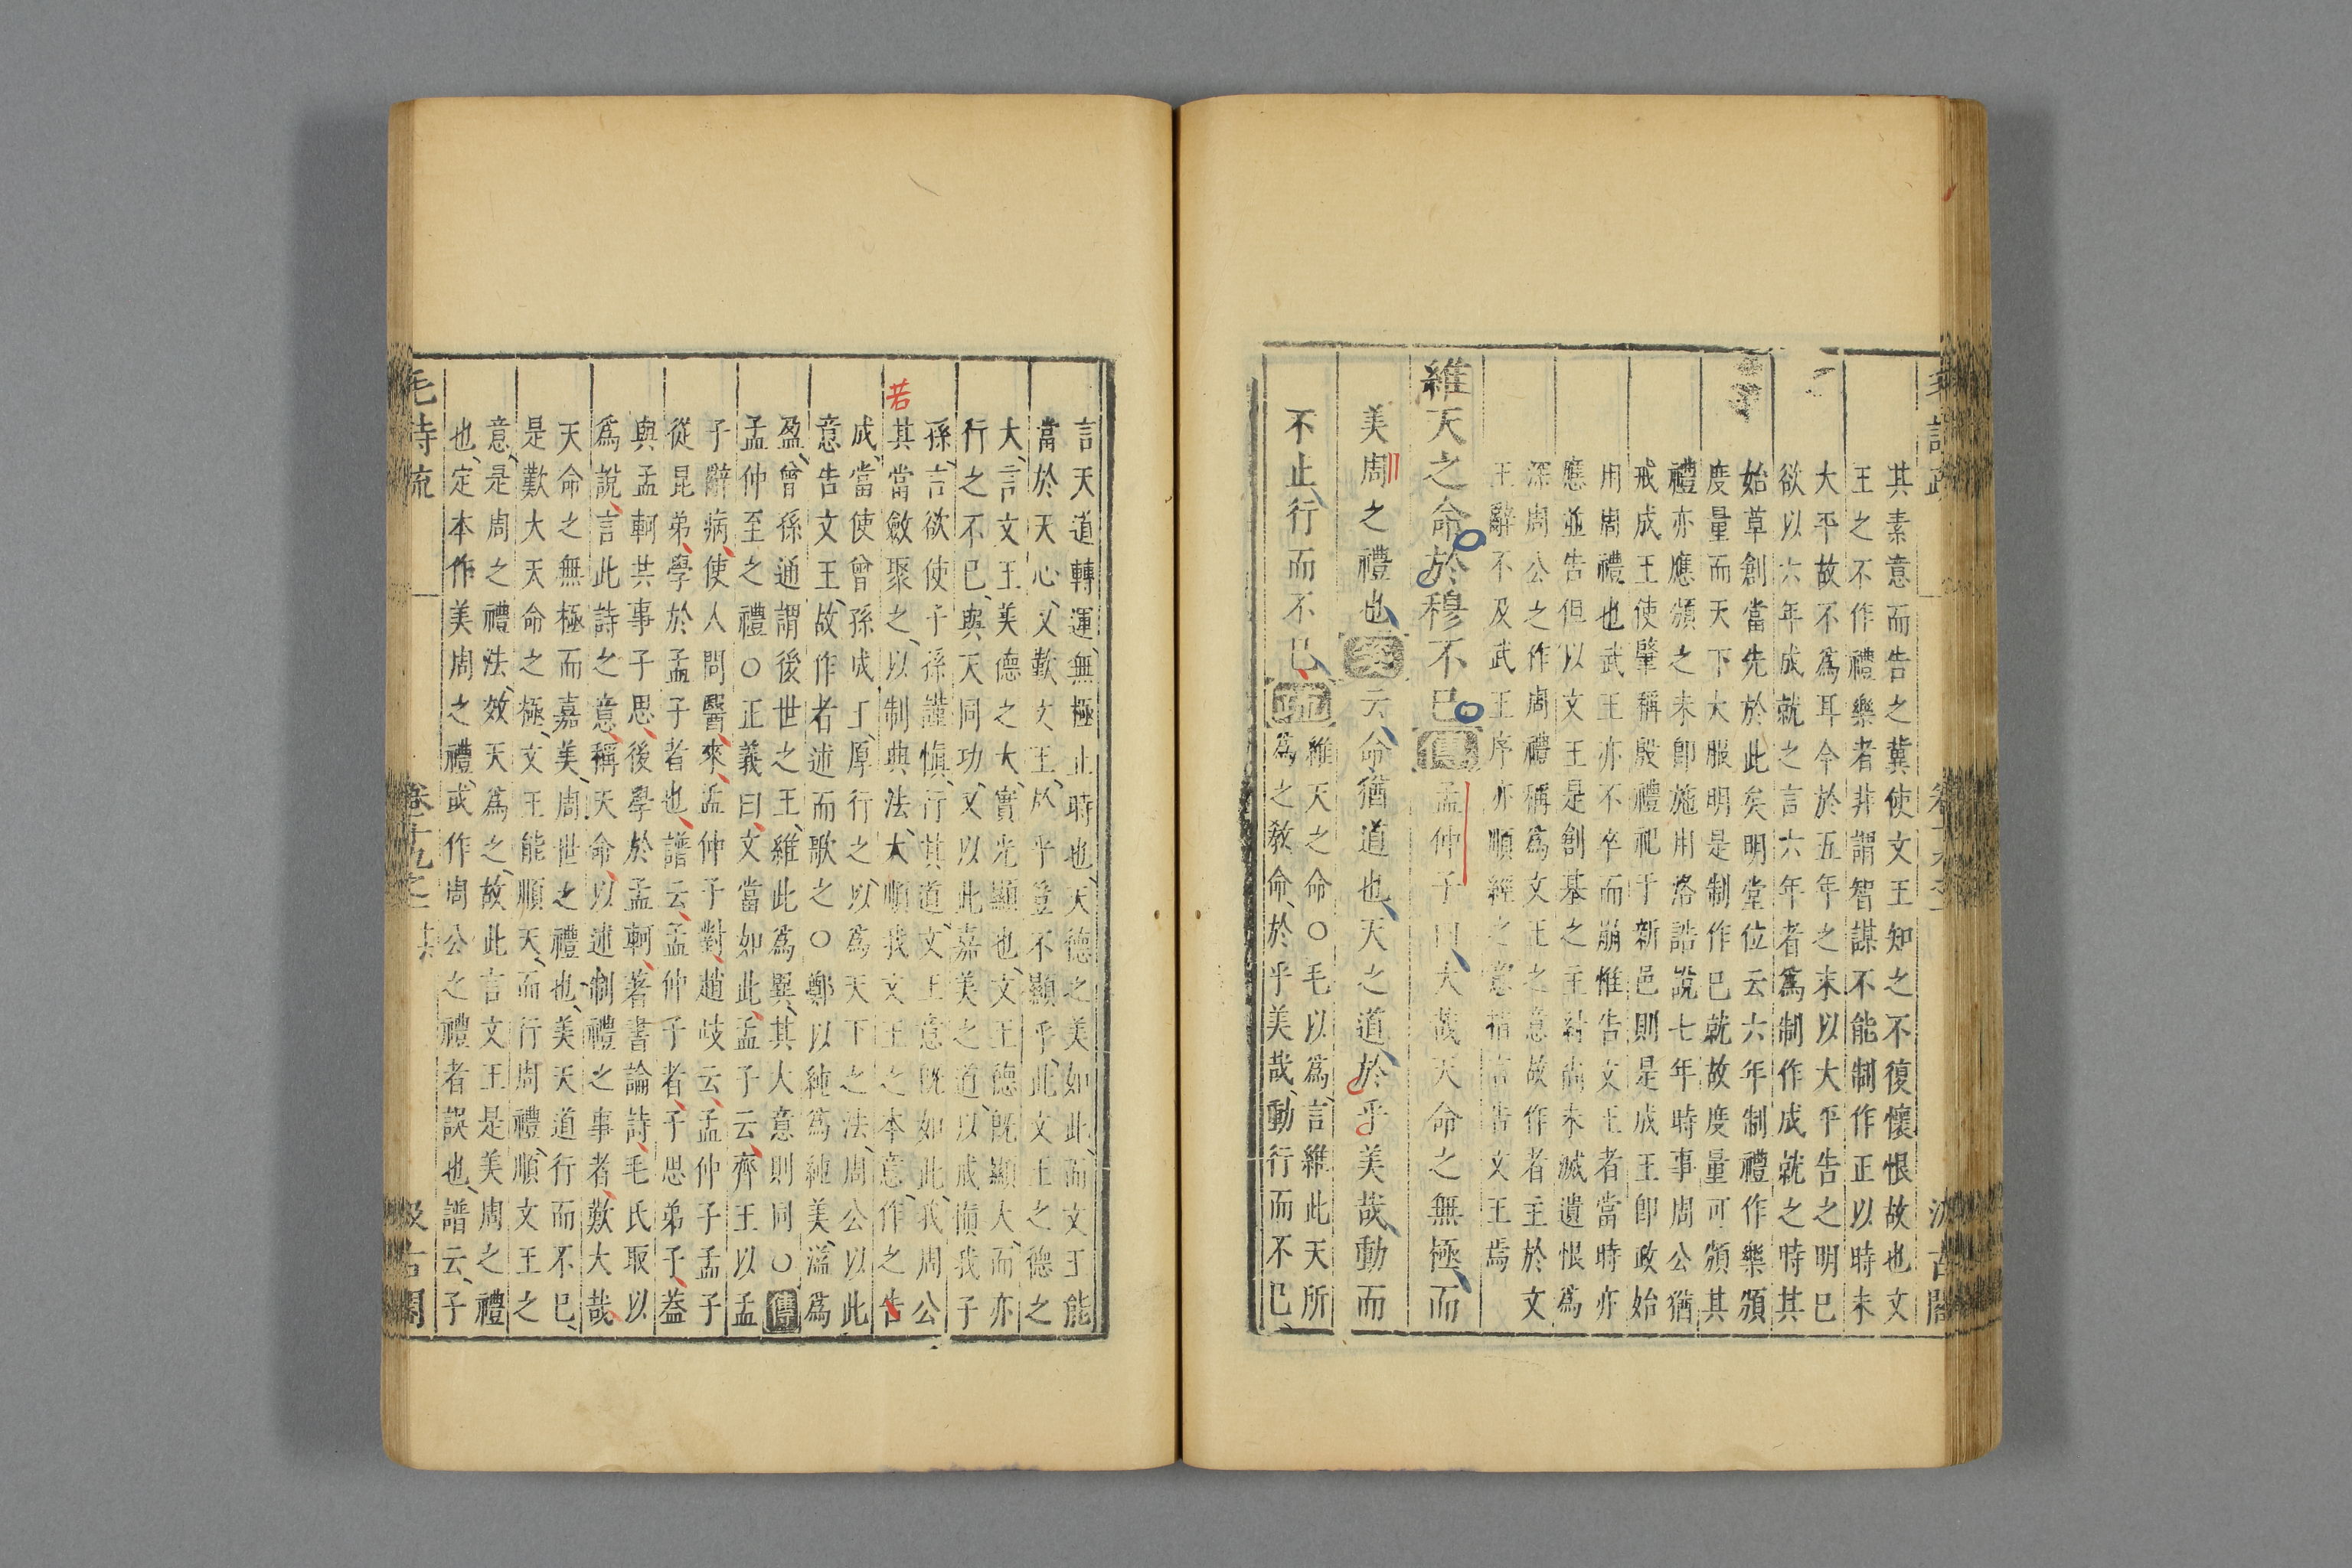 其素意而告之冀使文王知之不復懷恨故也文
王之不作禮樂者非謂智謀不能制作正以時未
大平故不為耳今於五年之末以大平告之明已
欲以六年成就之言六年者為制作成就之時其
始草創當先於此矣明堂位云六年制禮作樂頒
度量而天下大服明是制作已就故度量可頒其
禮亦應頒之未即施用洛誥說七年時事周公猶
戒成王使肇稱殷禮祀于新邑則是成王即政始
用周禮也武王亦不卒而崩惟告文王者當時亦
應並告但以文王是創基之主紂尚未滅遺恨為
深周公之作周禮稱為文王之意故作者主於文
王辭不及武王序亦順經之意指言告文王焉
維天之命於穆不已傳孟仲子曰大哉天命之無極而
美周之禮也箋云命猶道也天之道於乎美哉動而
不止行而不已疏維天之命○毛以為言維此天所
為之教命於乎美哉動行而不已
言天道轉運無極止時也天德之美如此而文王能
當於天心又歎文王於乎豈不顯乎此文王之德之
大言文王美德之大實光顯也文王德既顯大而亦
行之不已與天同功又以此嘉美之道以戒愼我子
孫言欲使子孫謹愼行其道文王意既如此我周公
若
其當斂聚之以制典法大順我文王之本意作之告
成當使曾孫成王厚行之以為天下之法周公以此
意告文王故作者述而歌之○鄭以純為純美溢為
盈曾孫通謂後世之王維此為異其大意則同○傳
孟仲至之禮○正義曰文當如此孟子云齊王以孟
子辭病使人問醫來孟仲子對趙岐云孟仲子孟子
從昆弟學於孟子者也譜云孟仲子者子思弟子蓋
與孟軻共事子思後學於孟軻著書論詩毛氏取以
為說言此詩之意稱天命以述制禮之事者歎大哉
天命之無極而嘉美周世之禮也美天道行而不已
是歎大天命之極文王能順天而行周禮順文王之
意是周之禮法效天為之故此言文王是美周之禮
也定本作美周之禮或作周公之禮者誤也譜云子
毛詩疏　卷十九之一　汲古閣